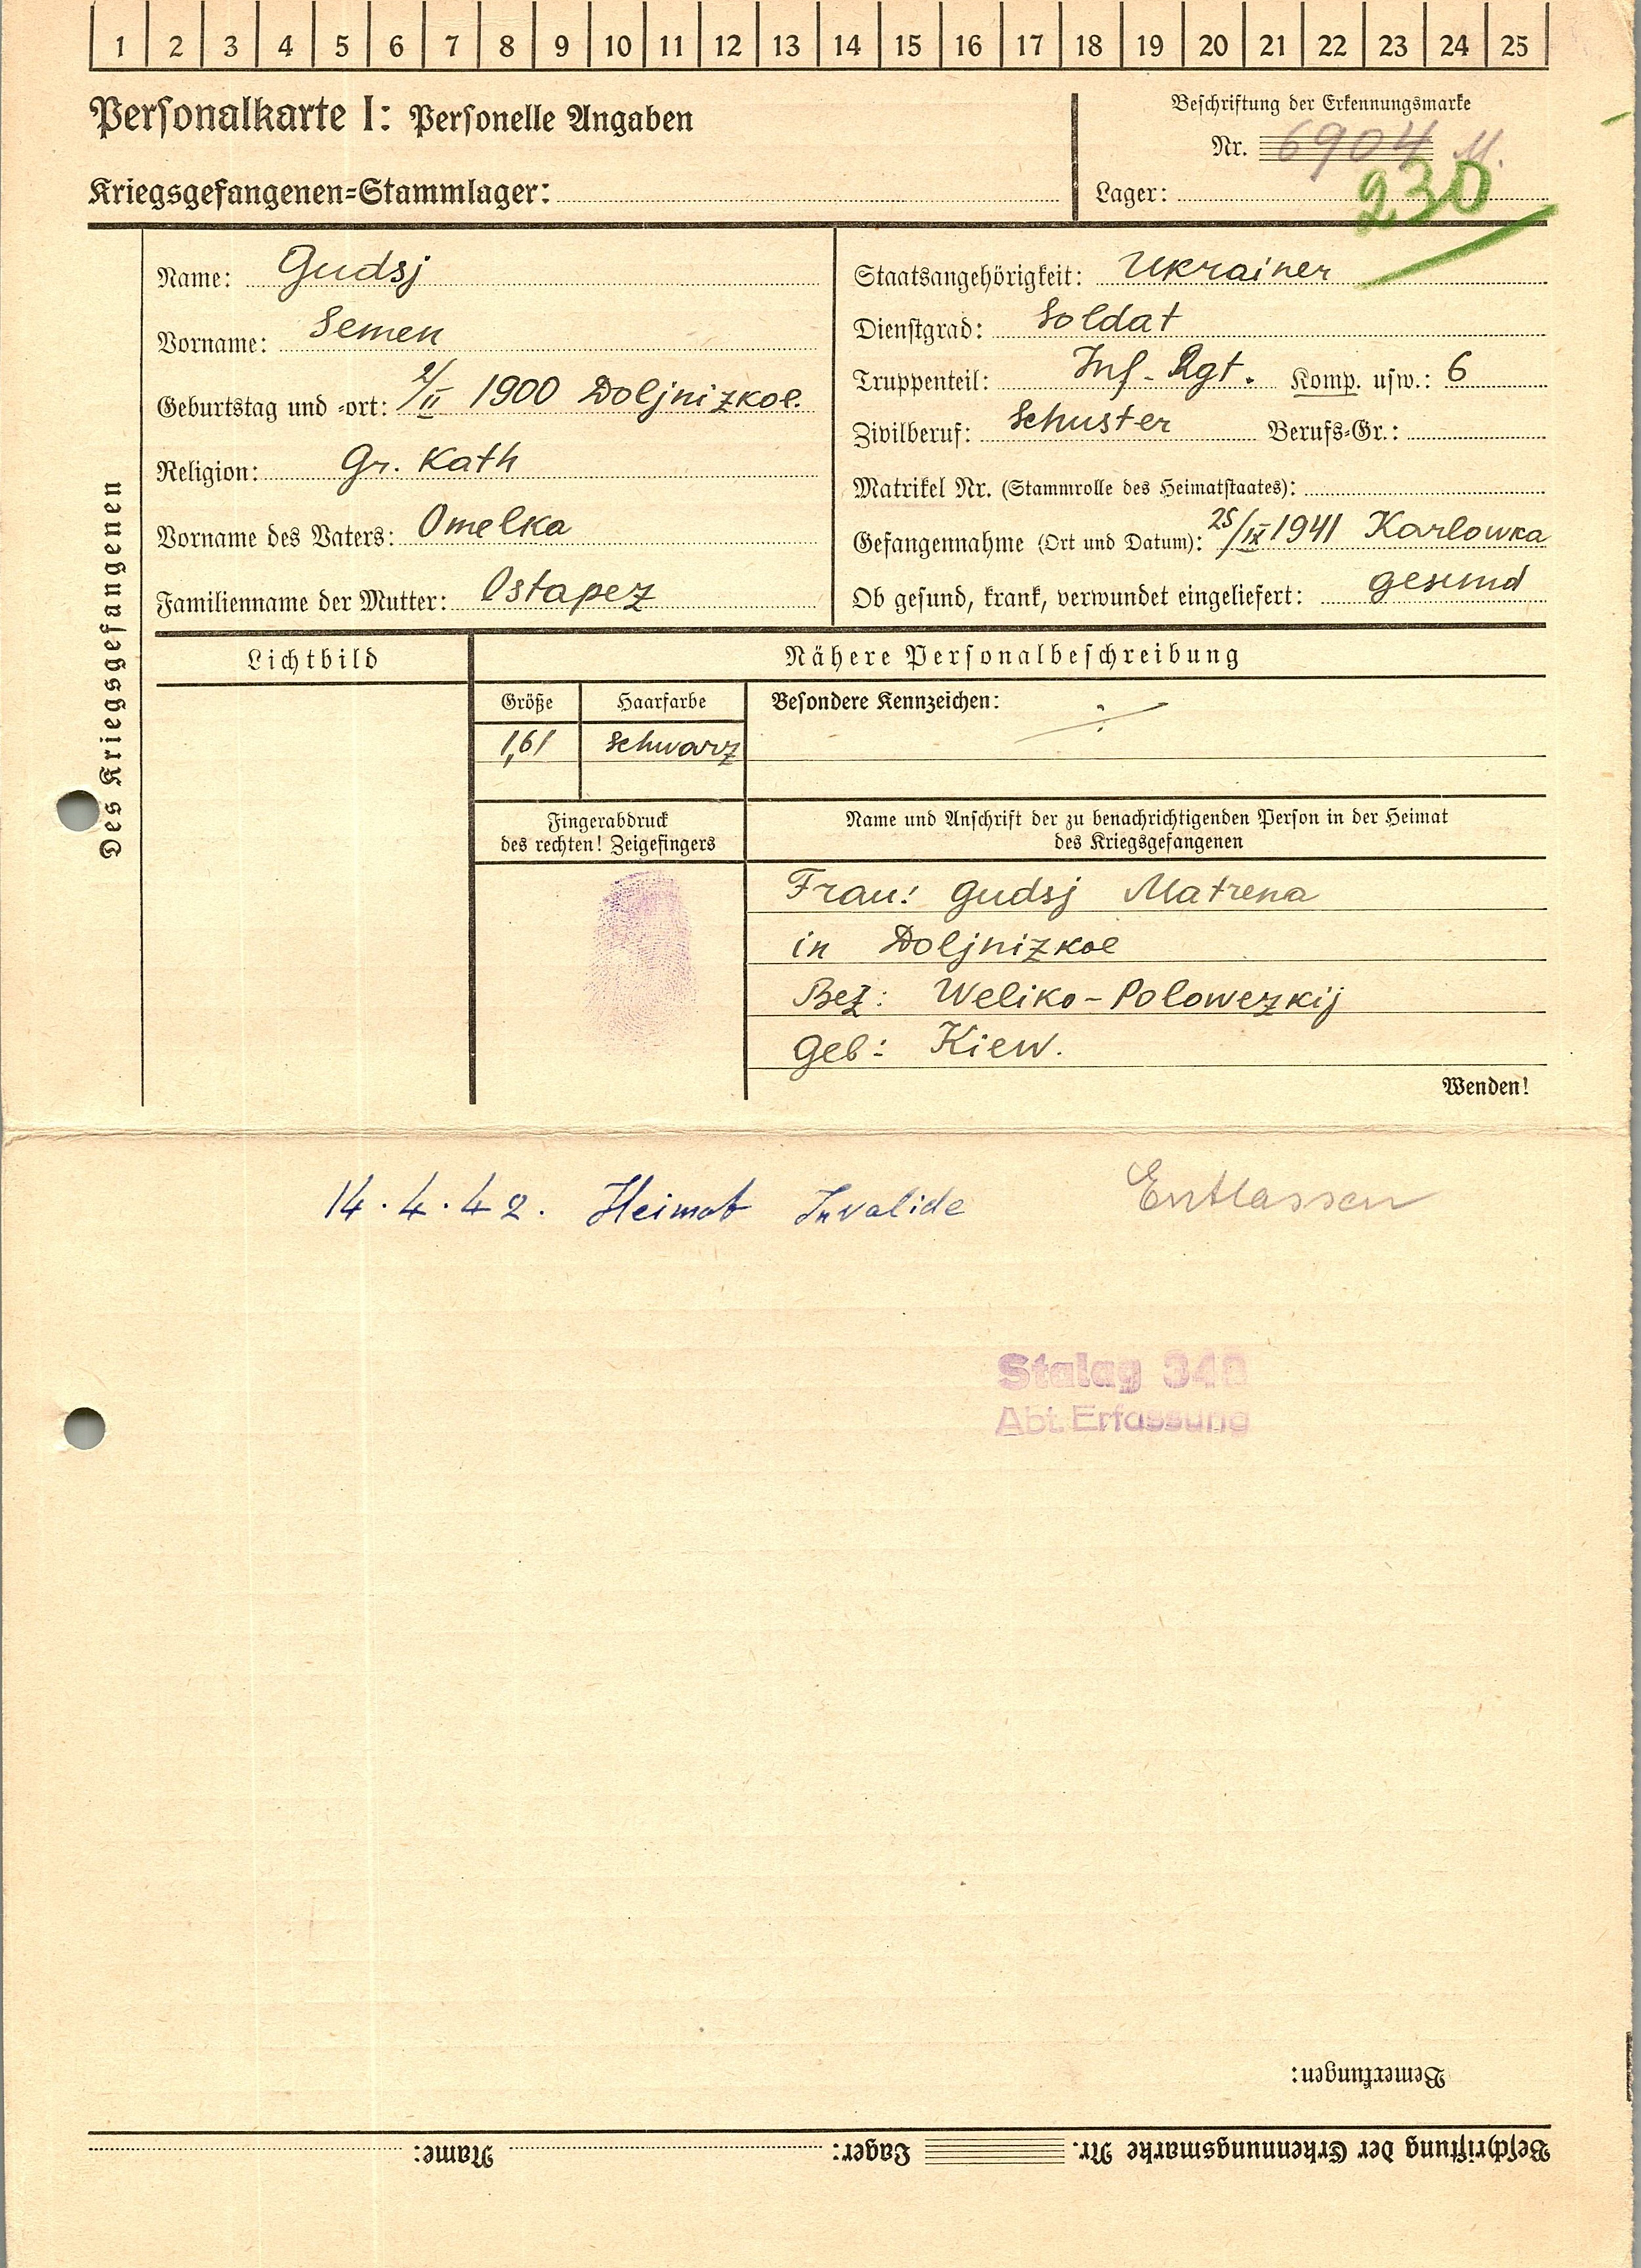 1 2 3 4 5 6 7 8 9 10 11 12 13 14 15 16 17 18 19 20 21 22 23 24 25
Personalkarte I: Personelle Angaben
Beschriftung der Erkennungsmarke
Nr. 6904
Kriegsgefangenen-Stammlager:
Lager: 230
Des Kriegsgefangenen
Name: Gudsj
Vorname: Semen
Geburtstag und -ort: 2/II 1900 Doljnizkoe.
Religion: Gr. Kath
Vorname des Vaters: Omelka
Familienname der Mutter: Ostapez
Staatsangehörigkeit: Ukrainer
Dienstgrad: Soldat
Truppenteil: Inf-Rgt. Komp. usw.: 6
Zivilberuf: Schuster Berufs-Gr.:
Matrikel Nr. (Stammrolle des Heimatstaates):
Gefangennahme (Ort und Datum): 25/IX 1941 Karlowka
Ob gesund, krank, verwundet eingeliefert: gesund
Lichtbild
Nähere Personalbeschreibung
Größe
Haarfarbe
Besondere Kennzeichen:
1,61
schwarz
Fingerabdruck
des rechten! Zeigefingers
Name und Anschrift der zu benachrichtigenden Person in der Heimat
des Kriegsgefangenen
Frau: Gudsj Matrena
in Doljnizkoe
Bez: Weliko-Polowezkij
Geb: Kiew.
Wenden!
14.4.42. Heimat Invalide Entlassen
Stalag
Abt. Erfassung
Bemerkungen:
Beschriftung der Erkennungsmarke Nr. Lager: Name: